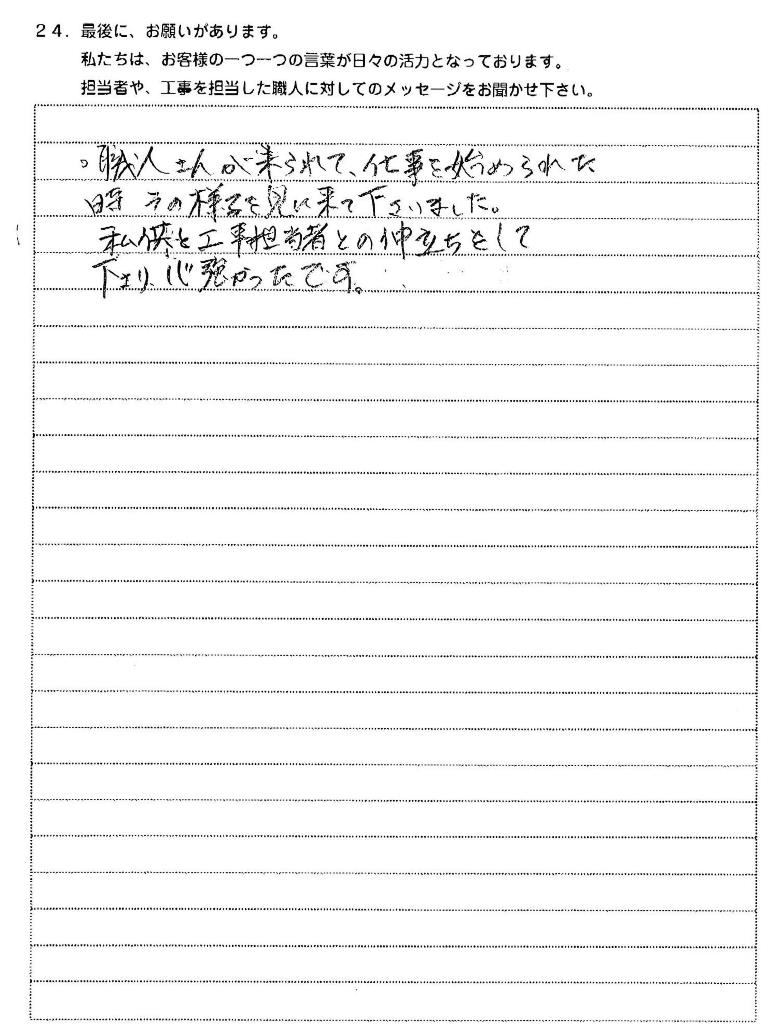 24. 最後に、お願いがあります。
私たちは、お客様の一つ一つの言葉が日々の活力となっております。
担当者や、工事を担当した職人に対してのメッセージをお聞かせ下さい。
○職人さんが来られて、仕事を始められた
時 その様子を見に来て下さいました。
私供と工事担当者との仲立ちをして
下さり、心強かったです。